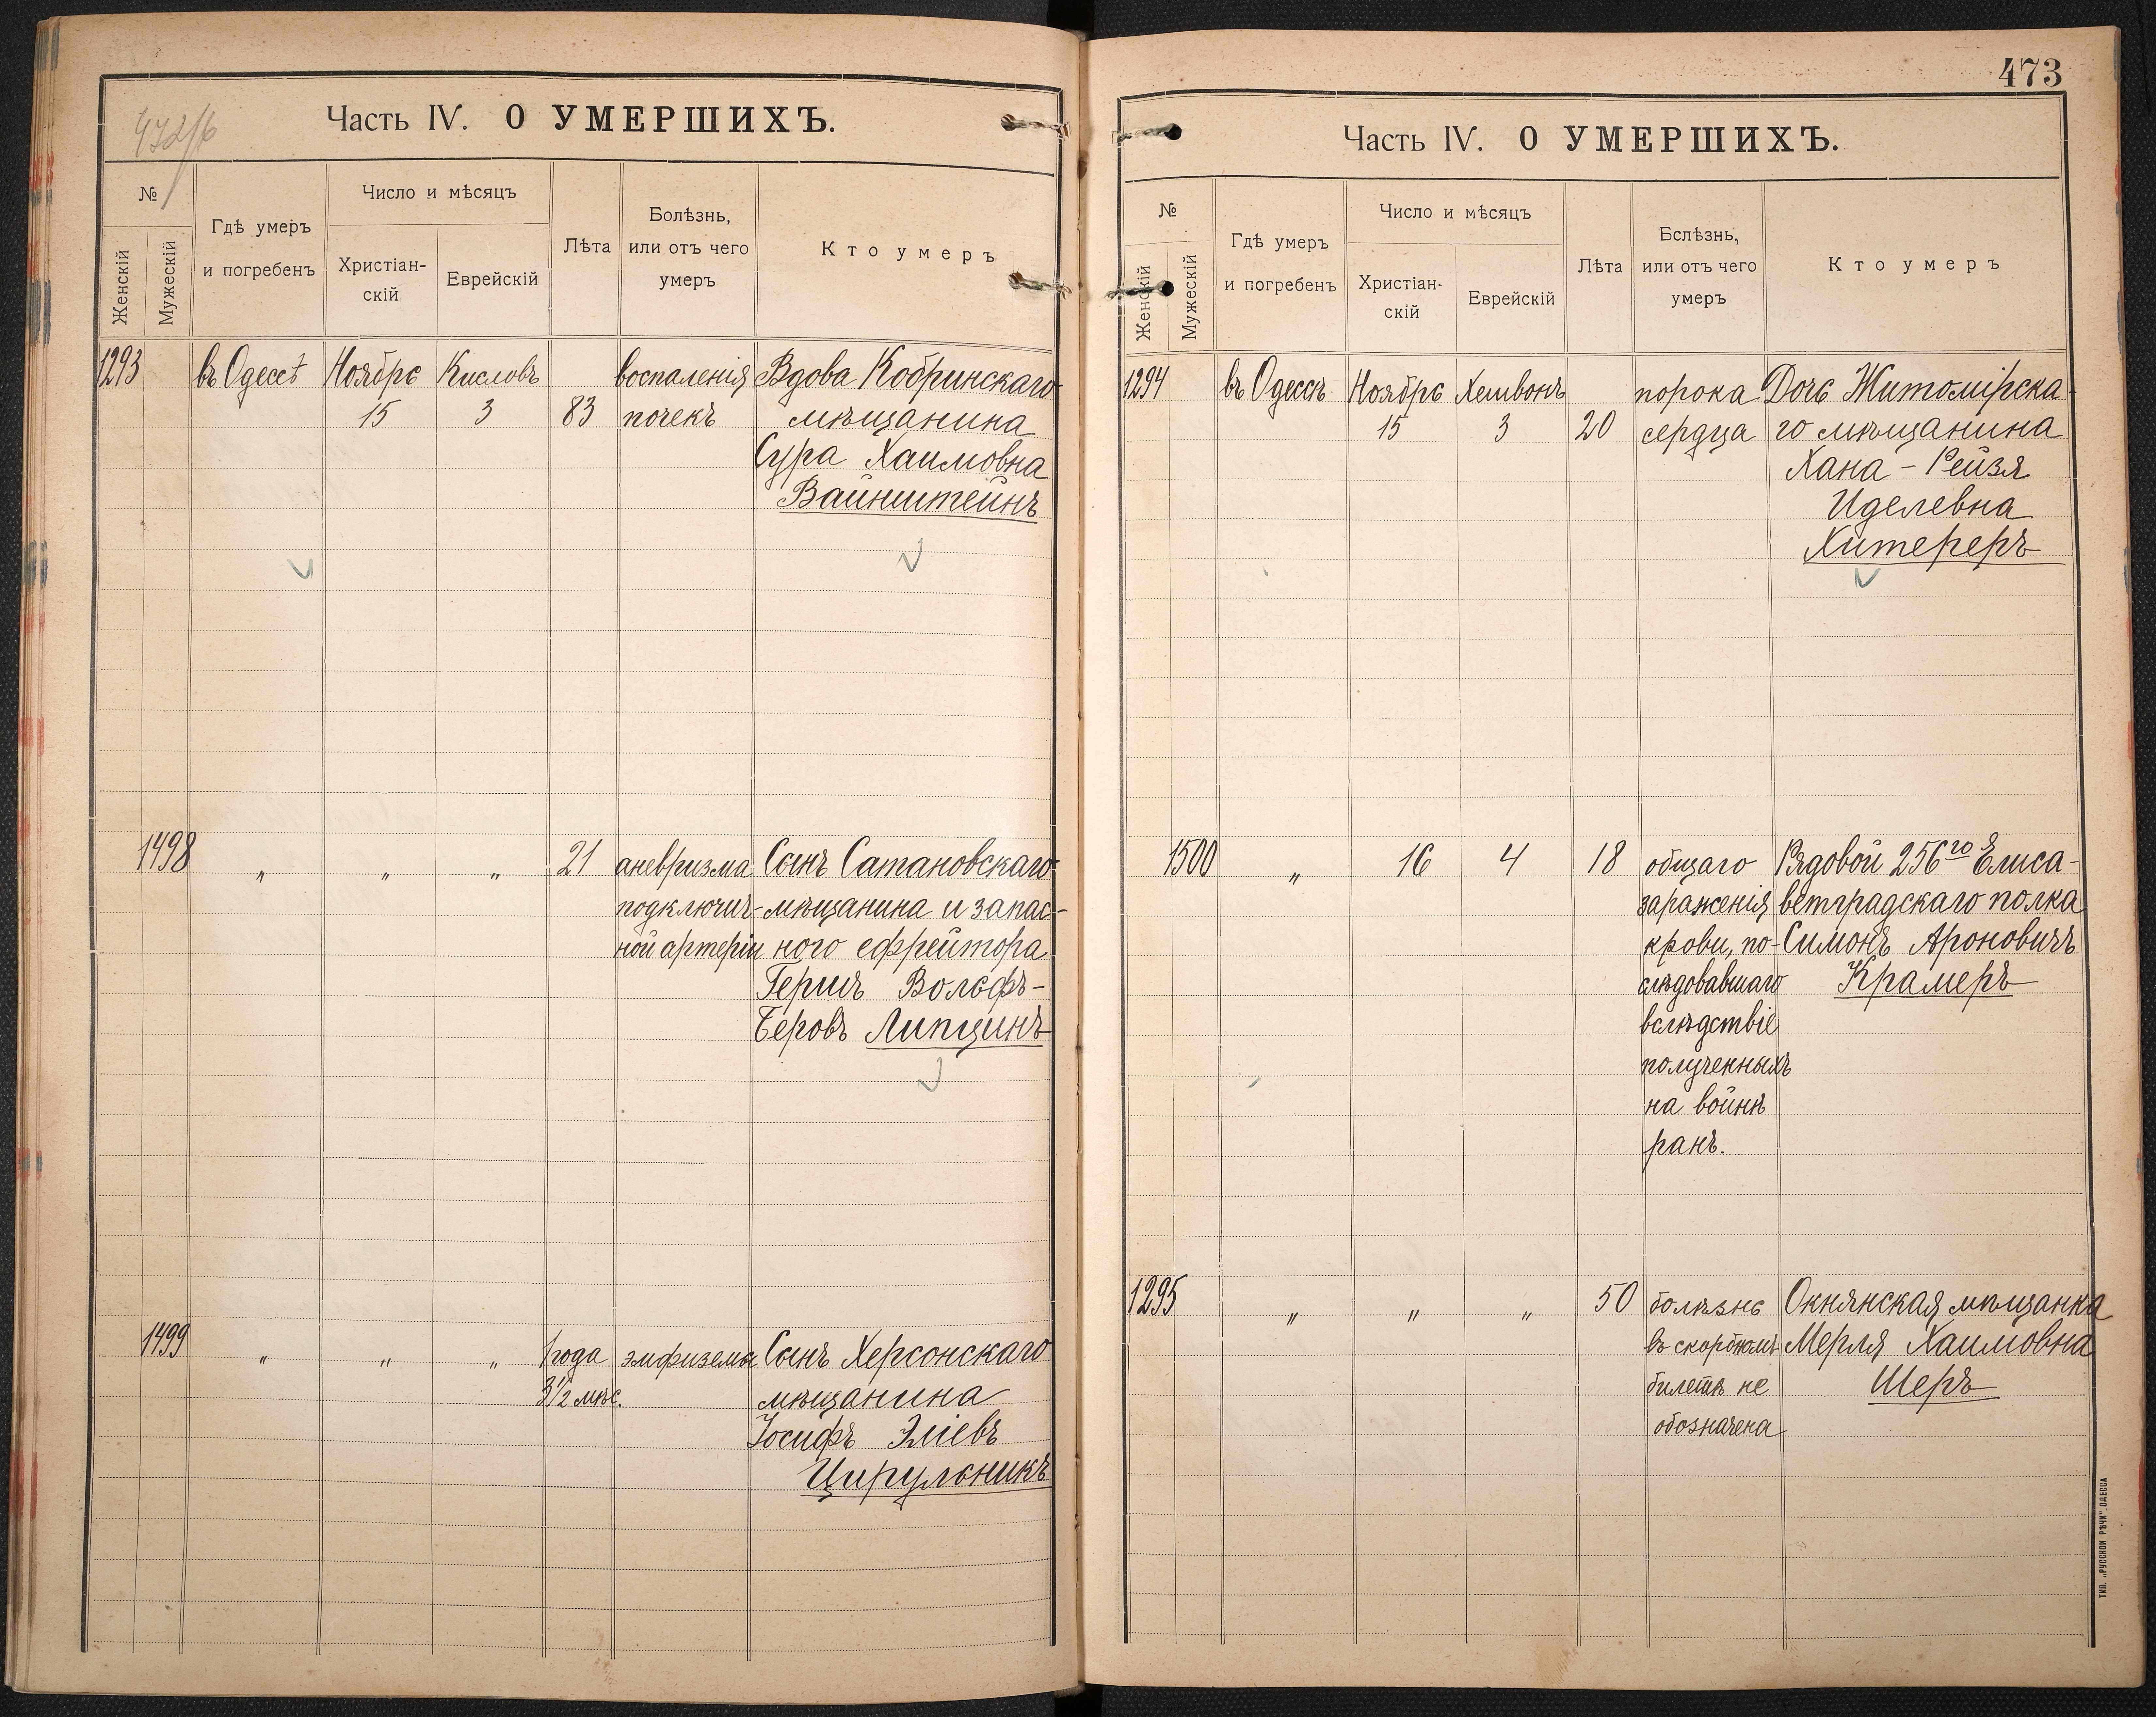 472/б
Часть IV. О УМЕРШИХЪ.
№
Женскій
Мужескій
Гдѣ умеръ
и погребенъ
Число и мѣсяцъ
Христіан-
скій
Еврейскій
Лѣта
Болѣзнь,
или отъ чего
умеръ
Кто умеръ
1293
въ Одессѣ
Ноябрь
15
Кисловъ
3
83
воспаленія
почекъ
Вдова Кобринскаго
мѣщанина
Сура Хаимовна
Вайнштейнъ
1498
"
"
"
21
аневризма
подключич-
ной артеріи
Сынъ Сатановскаго
мѣщанина и запас-
ного ефрейтора
Гершъ Вольфъ-
Беровъ Липцинъ
1499
"
"
"
1 года
3 1/2 мѣс.
эмфиземы
Сынъ Херсонскаго
мѣщанина
Іосифъ Эліевъ
Цирульникъ
473
Часть IV. О УМЕРШИХЪ.
№
Женскій
Мужескій
Гдѣ умеръ
и погребенъ
Число и мѣсяцъ
Христіан-
скій
Еврейскій
Лѣта
Бслѣзнь,
или отъ чего
умеръ
Кто умеръ
1294
въ Одессѣ
Ноябрь
15
3
20
порока
сердца
Дочь Житомірска-
го мѣщанина
Хана - Рейзя
Иделевна
Хитереръ
1500
"
16
4
18
общаго
зараженія
крови, по-
слѣдовавшаго
вслѣдствіе
полученныхъ
на войнѣ
ранъ.
Рядовой 256го Елиса-
ветградскаго полка
Симонъ Ароновичъ
Крамеръ
1295
"
"
"
50
болѣзнь
въ скорбномъ
билетѣ не
обозначена
Окнянская мѣщанка
Мерля Хаимовна
Шеръ
ТИП. „РУССКОЙ РѢЧИ" ОДЕССА